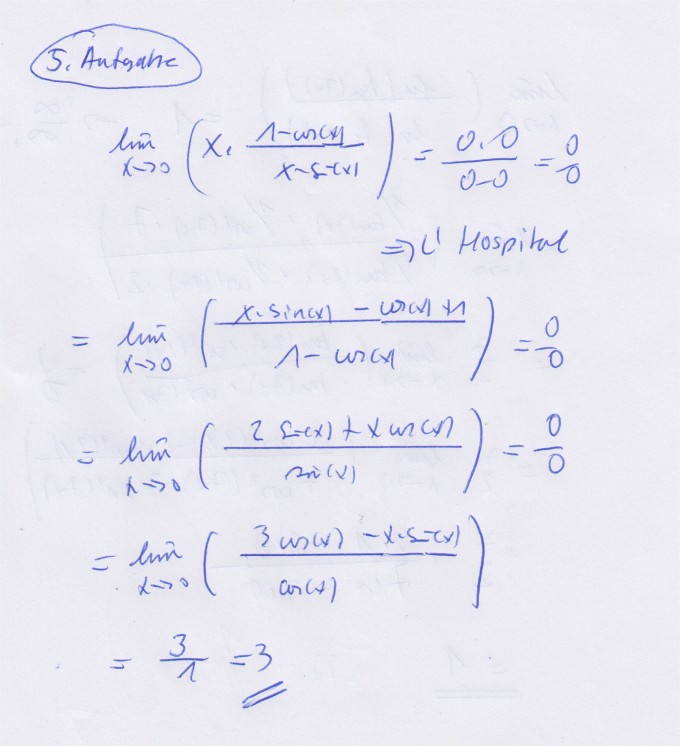 5. Aufgabe
lim x→0 (x · (1-cos(x))/(x-sin(x))) = (0·0)/(0-0) = 0/0
⇒ L'Hospital
= lim x→0 ((x·sin(x) - cos(x) + 1)/(1-cos(x))) = 0/0
= lim x→0 ((2 sin(x) + x cos(x))/(sin(x))) = 0/0
= lim x→0 ((3 cos(x) - x·sin(x))/(cos(x)))
= 3/1 = 3